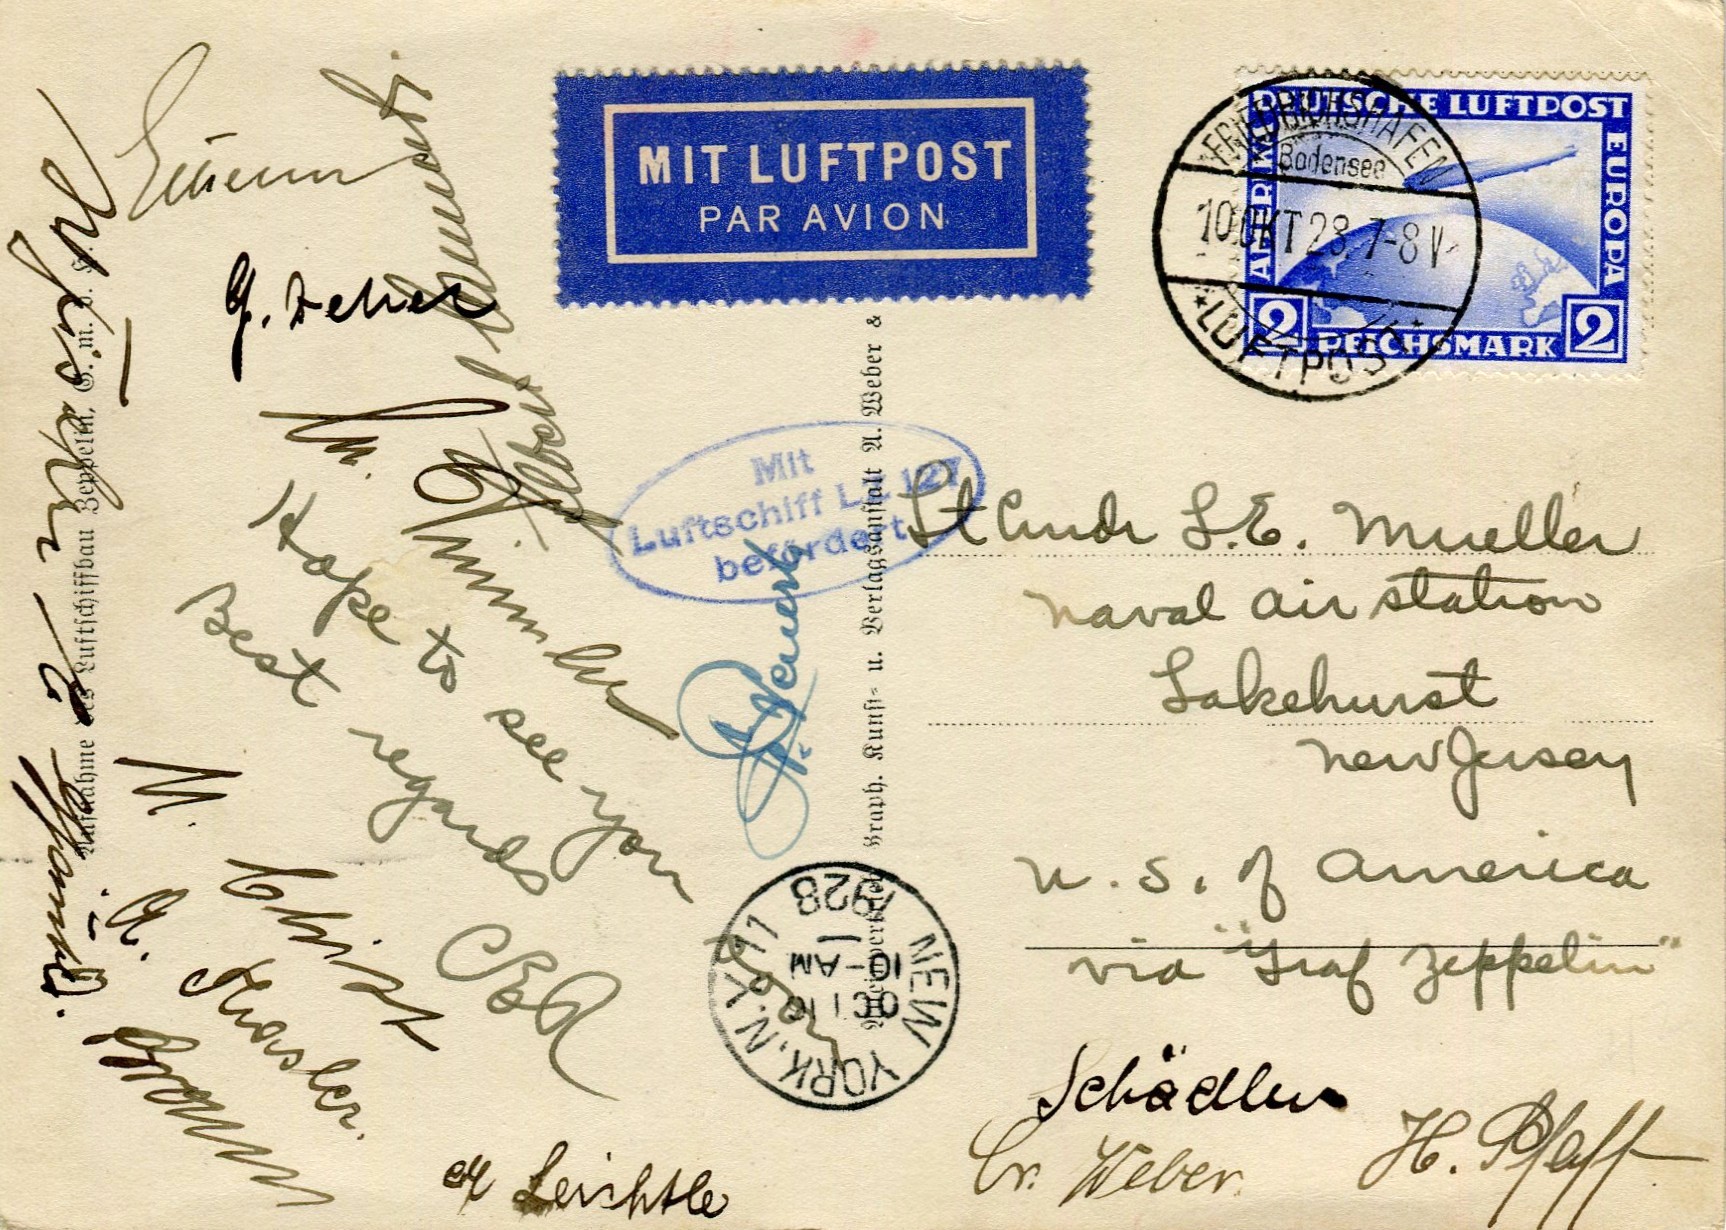 MIT LUFTPOST
PAR AVION
DEUTSCHE LUFTPOST
EUROPA
AMERIKA
2 REICHSMARK 2
FRIEDRICHSHAFEN
Bodensee
10.OKT 28.7-8V
* LUFTPOST *
Mit
Luftschiff LZ 127
befördert
NEW YORK, N.Y.
OCT 16
10-AM
1928
Lt Cmdr L.E. Mueller
Naval Air Station
Lakehurst
New Jersey
U. S. of America
via "Graf Zeppelin"
Hope to see you
Best regards
CER
Schädler
Gr. Weber.
H. Pfaff
Leichtle
M. Christ
A. Kassler.
Braun
Aufnahme des Luftschiffbau Zeppelin, G. m. b. H.
Graph. Kunst- u. Verlagsanstalt A. Weber &